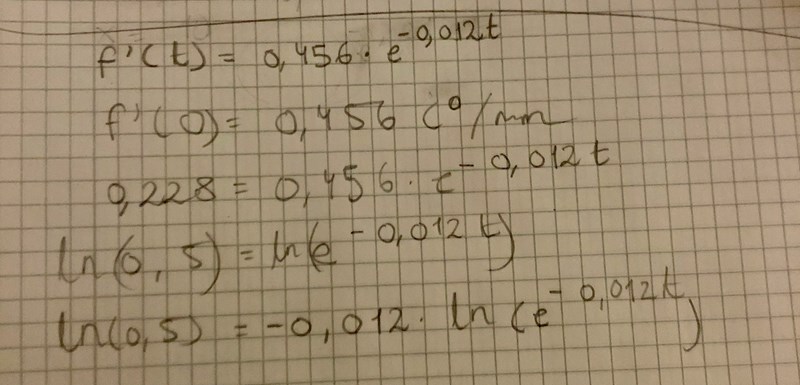 f'(t) = 0,456 · e^-0,012t
f'(0) = 0,456 C°/min
0,228 = 0,456 · e^-0,012t
ln(0,5) = ln(e^-0,012t)
ln(0,5) = -0,012 · ln(e^-0,012t)